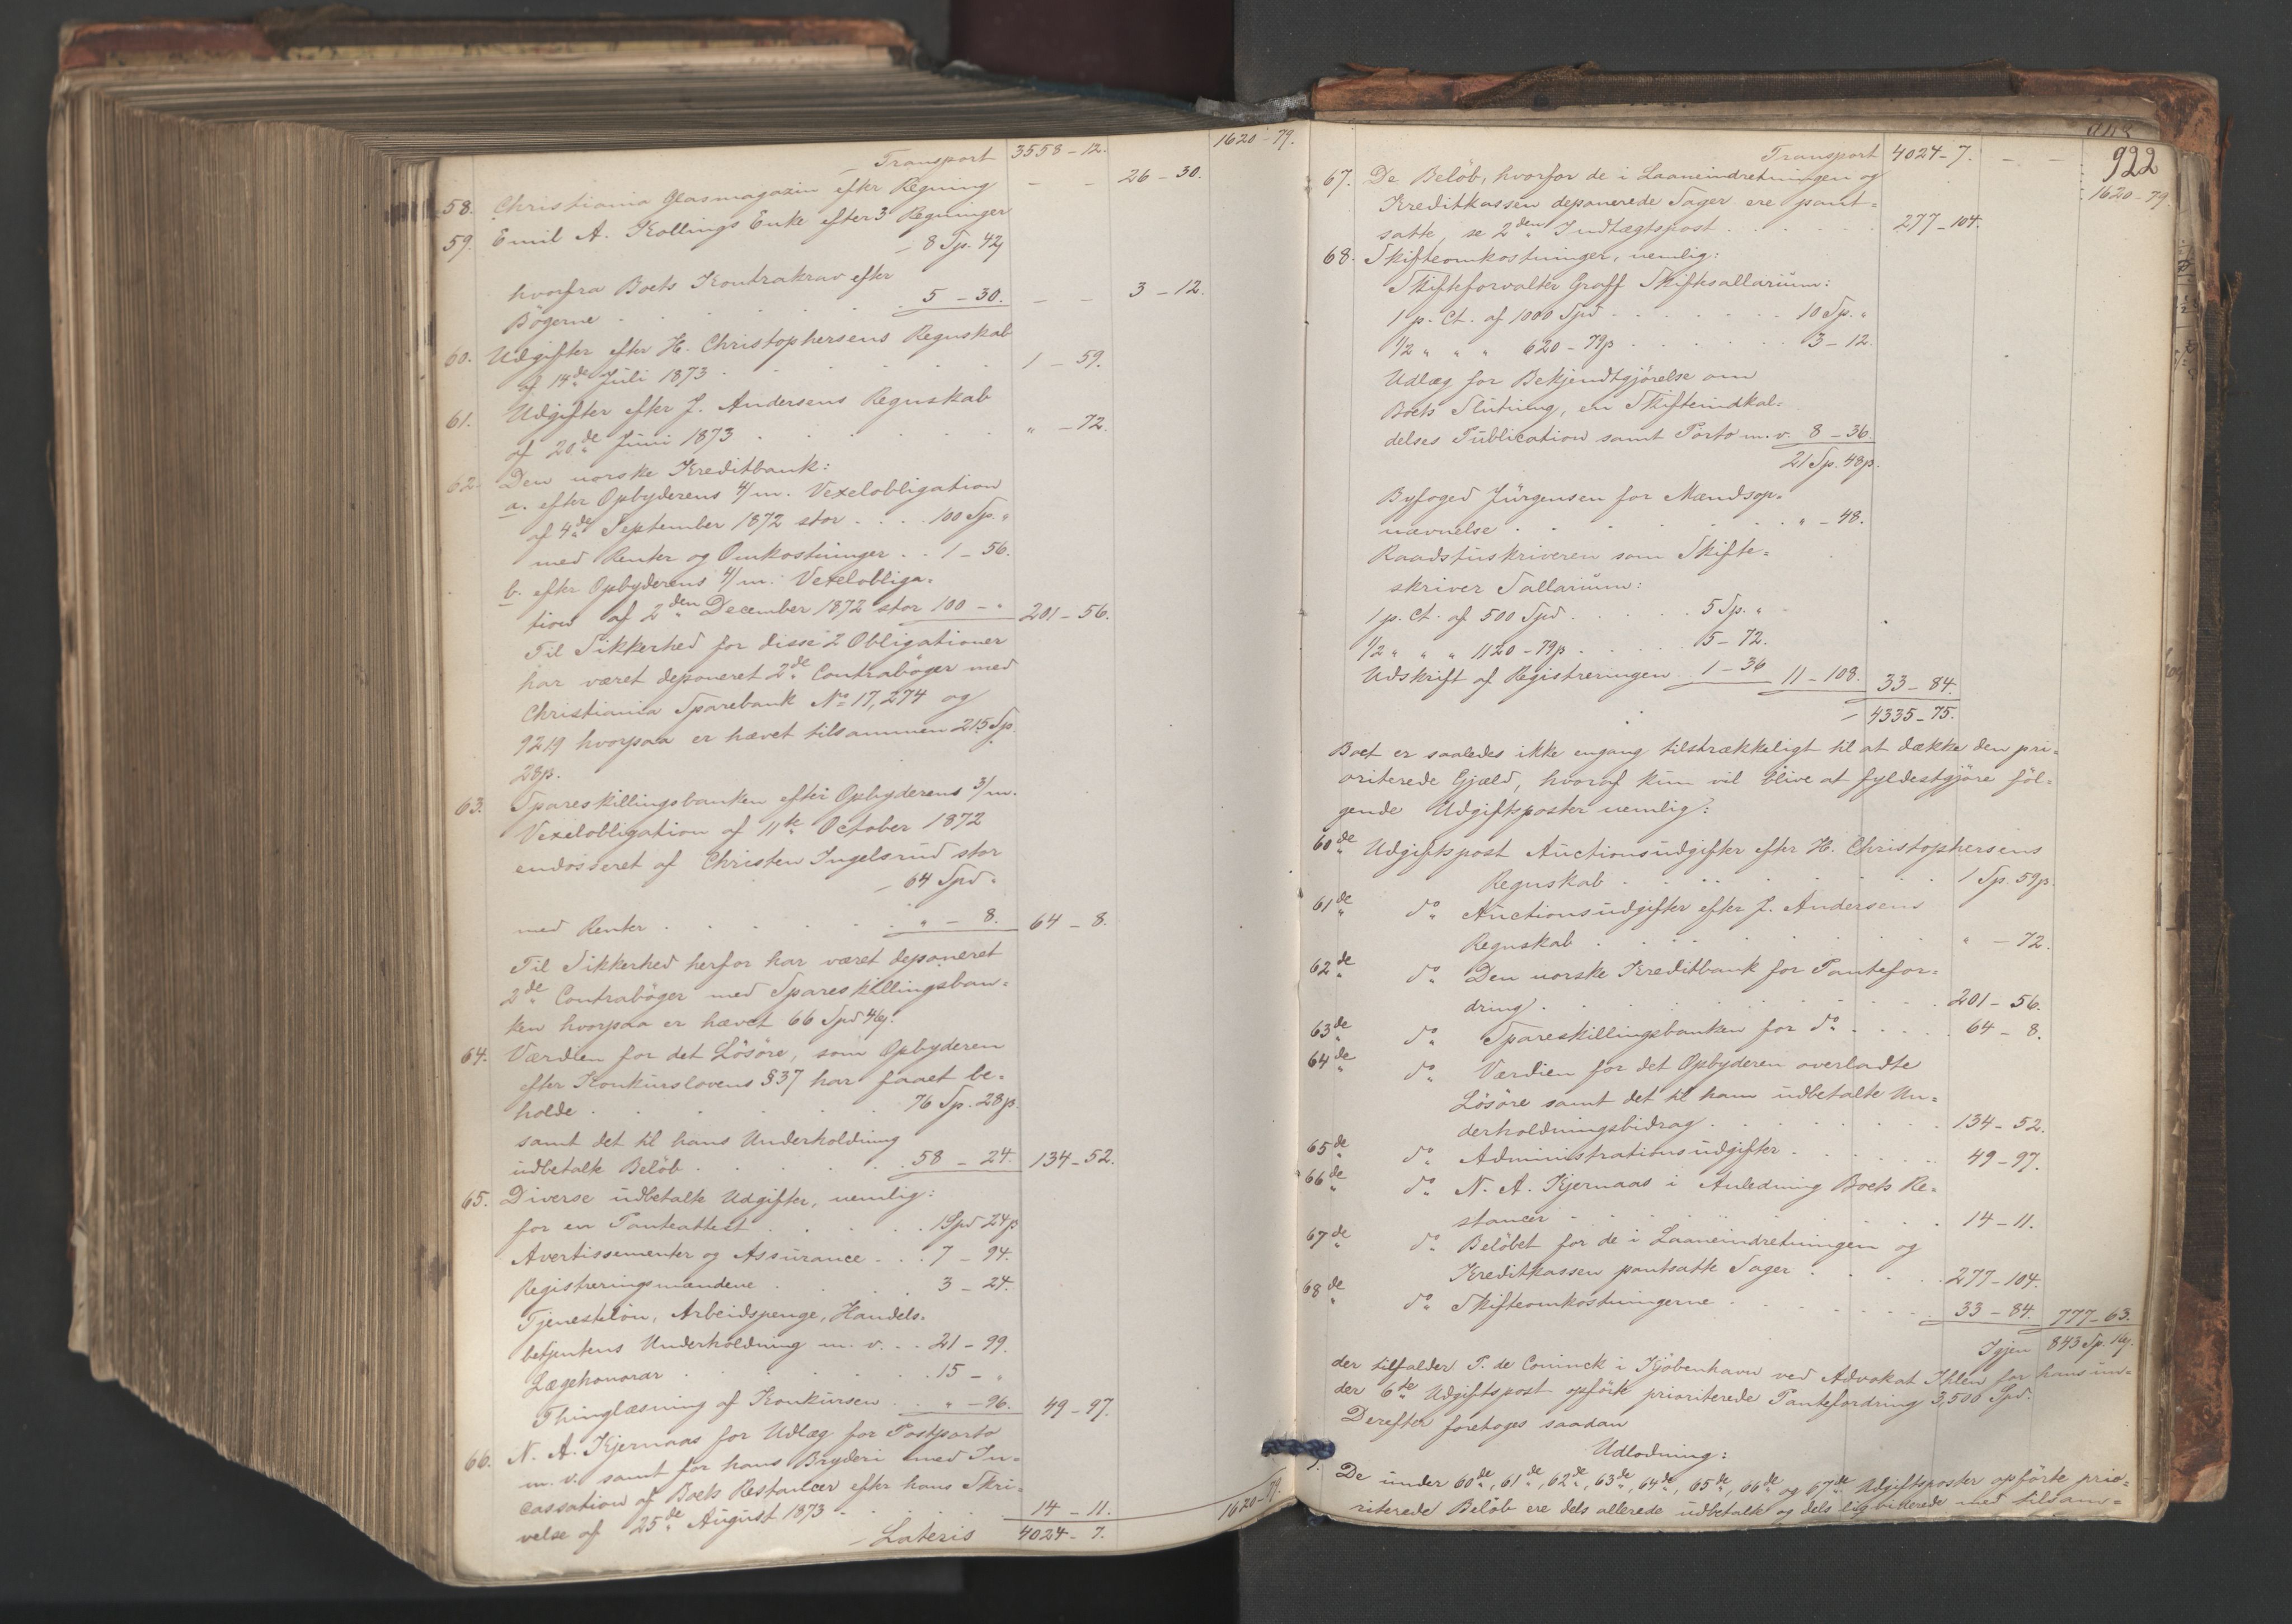 Transport 3558 – 12. 1620 – 79.
58. Christiania Glasmagazin efter Regning – – 26 – 30.
59. Emil A. Kollings Enke efter 3 Regninger
8 Sp. 42
hvorfra Boets Kontrakrav efter
Bøgerne . . . . 5 – 30. – – 3 – 12.
60. Udgifter efter H. Christophersens Regnskab
af 14de Juli 1873 . . . . 1 – 59.
61. Udgifter efter J. Andersens Regnskab
af 20de Juni 1873 . . . . " – 72.
62. Den norske Kreditbank:
a. efter Opbyderens 4/m. Vexelobligation
af 4de September 1872 stor . . . 100 Sp. "
med Renter og Omkostninger . . 1 – 56.
b. efter Opbyderens 4/m. Vexelobliga=
tion af 2den December 1872 stor 100 – " 201 – 56.
Til Sikkerhed for disse 2 Obligationer
har været deponeret 2de Contrabøger med
Christiania Sparebank No 17,274 og
9219 hvorpaa er hævet tilsammen 215 Sp.
28 β.
63. Spareskillingsbanken efter Opbyderens 3/m.
Vexelobligation af 11te October 1872
endosseret af Christen Ingelsrud stor
64 Spd "
med Renter . . . . " – 8. 64 – 8.
Til Sikkerhed herfor har været deponeret
2de Contrabøger med Spareskillingsban=
ken hvorpaa er hævet 66 Spd 46
64. Værdien for det Løsøre, som Opbyderen
efter Konkurslovens § 37 har faaet be=
holde . . . . 76 Sp. 28 β.
samt det til hans Underholdning
udbetalte Beløb . . . . 58 – 24. 134 – 52.
65. Diverse udbetalte Udgifter, nemlig:
for en Panteattest . . . . 1 Spd 24 β
Avertissementer og Assurance . . . 7 – 94.
Registreringsmændene . . . . 3 – 24.
Tjenesteløn, Arbeidspenge, Handels=
betjentens Underholdning m. v. . . 21 – 99.
Lægehonorar . . . . 15 – "
Thinglæsning af Konkursen . . " – 96. 49 – 97.
66. N. A. Kjernaas for Udlæg for Postporto
m. v. samt for hans Bryderi med In=
cassation af Boets Restancer efter hans Skri=
velse af 25de August 1873 . . . . 14 – 11.
Lateris 4024 – 7. 1620 – 79.
922
Transport 4024 – 7. – –
1620 – 79.
67. De Beløb, hvorfor de i Laaneindretningen og
Kreditkassen deponerede Sager ere pant=
satte, se 2den Indtægtspost . . . . 277 – 104.
68. Skifteomkostninger, nemlig:
Skifteforvalter Graff Skiftesallarium:
1 p. Ct. af 1000 Spd . . . . 10 Sp. "
1/2 " " " 620 – 79 β . . . . 3 – 12.
Udlæg for Bekjendtgjørelse om
Boets Slutning, en Skifteindkal=
delses Publication samt Porto m. v. 8 – 36
21 Sp. 48 β.
Byfoged Jürgensen for Mændsop=
nævnelse . . . . " – 48.
Raadstuskriveren som Skifte=
skriver Sallarium:
1 p. Ct. af 500 Spd . . . . 5 Sp. "
1/2 " " " 1120 – 79 β . . . . 5 – 72.
Udskrift af Registreringen . 1 – 36 11 – 108. 33 – 84.
4335 – 75.
Boet er saaledes ikke engang tilstrækkeligt til at dække den pri=
oriterede Gjæld, hvoraf kun vil blive at fyldestgjøre føl=
gende Udgiftsposter nemlig:
60de Udgiftspost Auctionsudgifter efter H. Christophersens
Regnskab . . . . 1 Sp. 59 β.
61de do Auctionsudgifter efter J. Andersens
Regnskab . . . . " – 72.
62de do Den norske Kreditbank for Pantefor=
dring . . . . 201 – 56.
63de do Spareskillingsbanken for do . . . . 64 – 8.
64de do Værdien for det Opbyderen overladte
Løsøre samt det til ham udbetalte Un=
derholdningsbidrag . . . . 134 – 52.
65de do Administrationsudgifter . . . . 49 – 97.
66de do N. A. Kjernaas i Anledning Boets Re=
stancer . . . . 14 – 11.
67de do Beløbet for de i Laaneindretningen og
Kreditkassen pantsatte Sager . . . . 277 – 104.
68de do Skifteomkostningerne . . . . 33 – 84. 777 – 63.
Igjen 843 Sp. 16
der tilfalder P. de Coninck i Kjøbenhavn ved Advokat Ihlen for hans un=
der 6te Udgiftspost opførte prioriterede Pantefordring 3,500 Spd.
Derefter foretoges saadan
Udlodning:
1. De under 60de, 61de, 62de, 63de, 64de, 65de, 66de og 67de Udgiftsposter opførte prio=
riterede Beløb ere dels allerede udbetalte og dels liqviderede med tilsam=